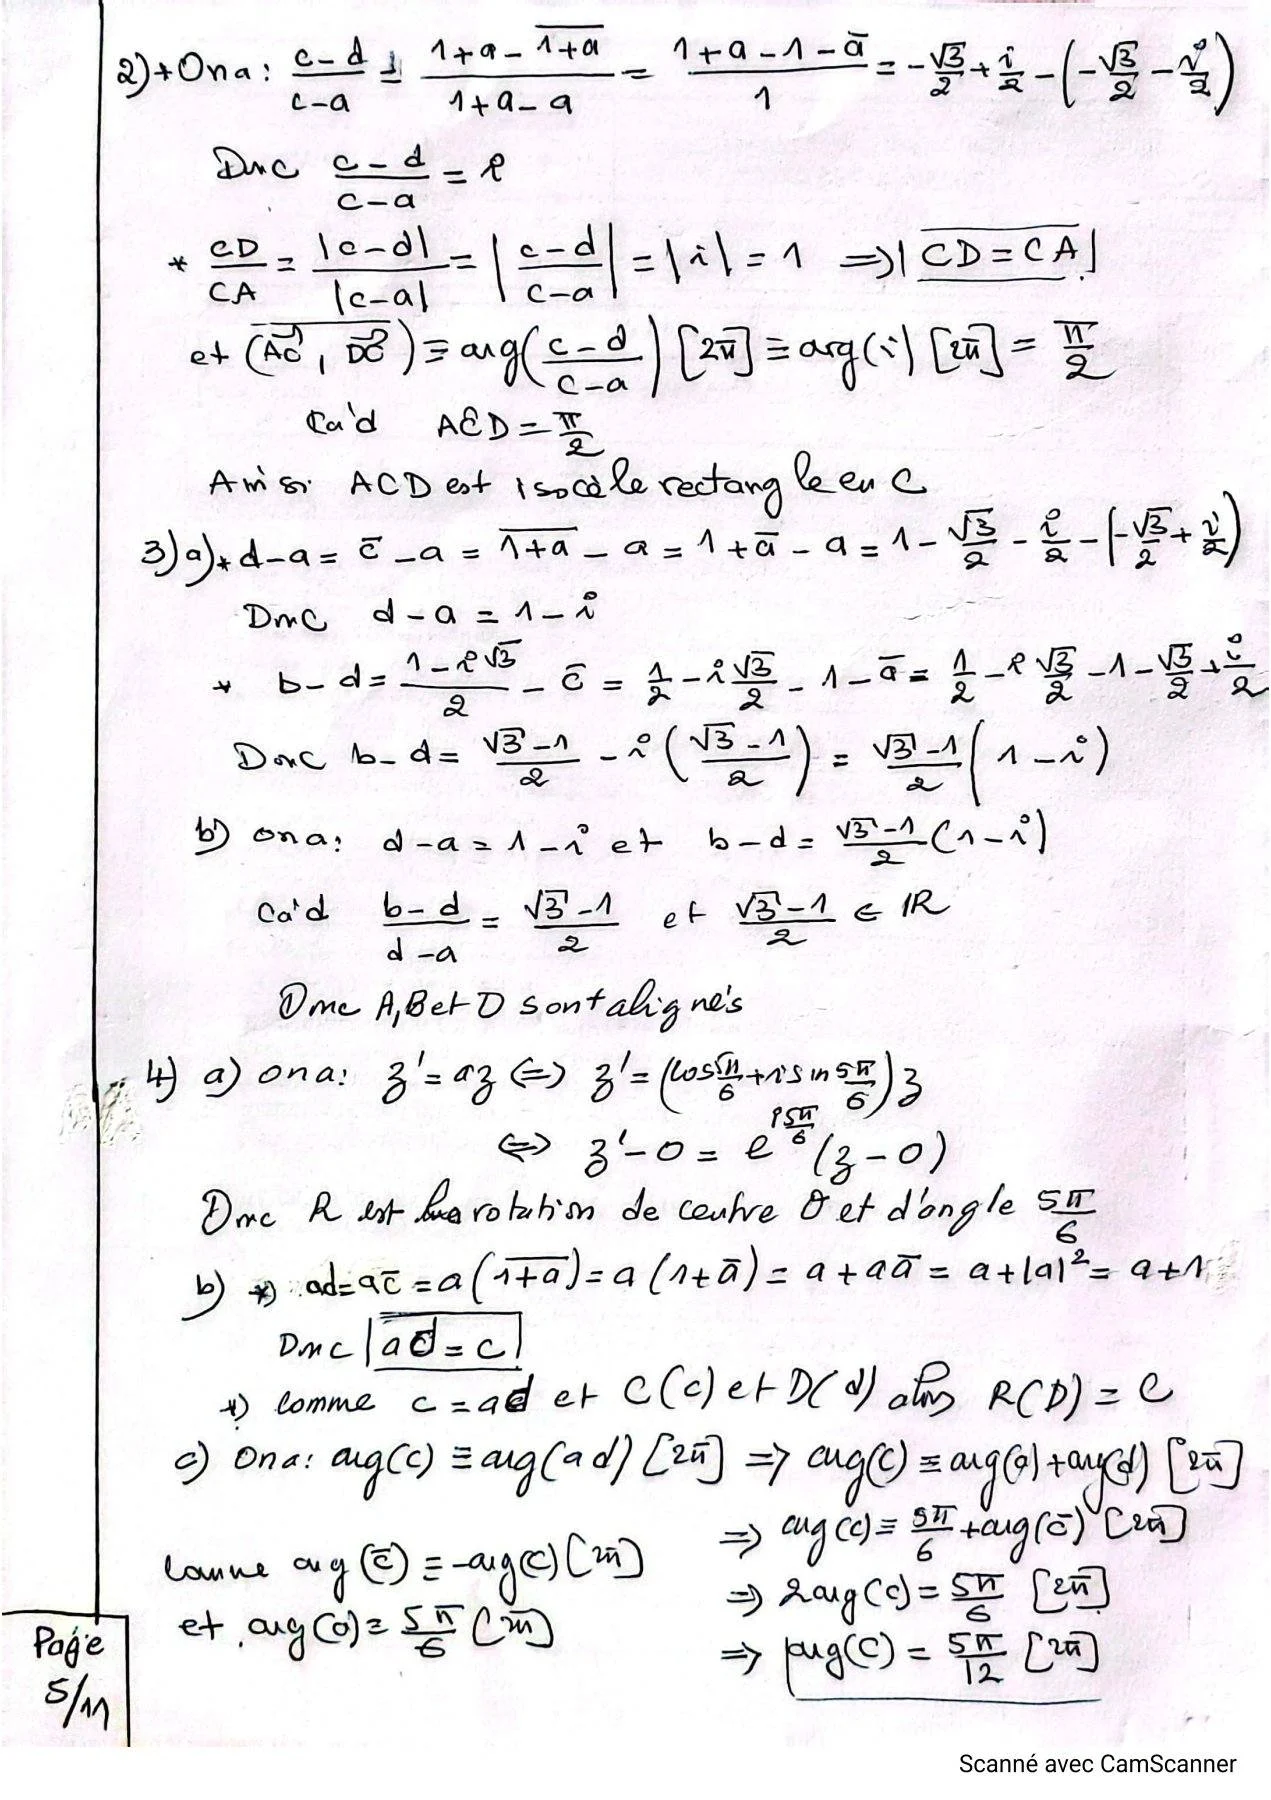 2)* On a : (c-d)/(c-a) = (1+a-\overline{1+a})/(1+a-a) = (1+a-1-\overline{a})/1 = -√3/2 + i/2 - (-√3/2 - i/2)
Donc (c-d)/(c-a) = i
* CD/CA = |c-d|/|c-a| = |(c-d)/(c-a)| = |i| = 1 ⇒ | CD = CA |
et (\overline{\vec{AC}, \vec{DC}}) ≡ arg((c-d)/(c-a)) [2π] ≡ arg(i) [2π] = π/2
Ca'd AĈD = π/2
Ainsi ACD est isocèle rectangle en C
3) a)* d-a = \overline{c} - a = \overline{1+a} - a = 1+\overline{a} - a = 1 - √3/2 - i/2 - (-√3/2 + i/2)
Donc d-a = 1-i
* b-d = (1-i√3)/2 - \overline{c} = 1/2 - i√3/2 - 1 - \overline{a} = 1/2 - i√3/2 - 1 - √3/2 + i/2
Donc b-d = (√3-1)/2 - i((√3-1)/2) = (√3-1)/2 (1-i)
b) on a : d-a = 1-i et b-d = (√3-1)/2 (1-i)
Ca'd (b-d)/(d-a) = (√3-1)/2 et (√3-1)/2 ∈ IR
Donc A, B et D sont alignés
4) a) on a : z' = az ⇔ z' = (cos 5π/6 + i sin 5π/6) z
⇔ z'-0 = e^{i5π/6} (z-0)
Donc R est la rotation de centre O et d'angle 5π/6
b) *) ad = a\overline{c} = a(\overline{1+a}) = a(1+\overline{a}) = a + a\overline{a} = a+|a|² = a+1
Donc | ad = c |
*) Comme c = ad et C(c) et D(d) alors R(D) = C
c) On a : arg(c) ≡ arg(ad) [2π] ⇒ arg(c) ≡ arg(a) + arg(d) [2π]
⇒ arg(c) ≡ 5π/6 + arg(\overline{c}) [2π]
Comme arg(\overline{c}) ≡ -arg(c) [2π]
⇒ 2arg(c) = 5π/6 [2π]
et arg(a) ≡ 5π/6 [2π]
⇒ | arg(c) = 5π/12 [2π]
Page
5/11
Scanné avec CamScanner